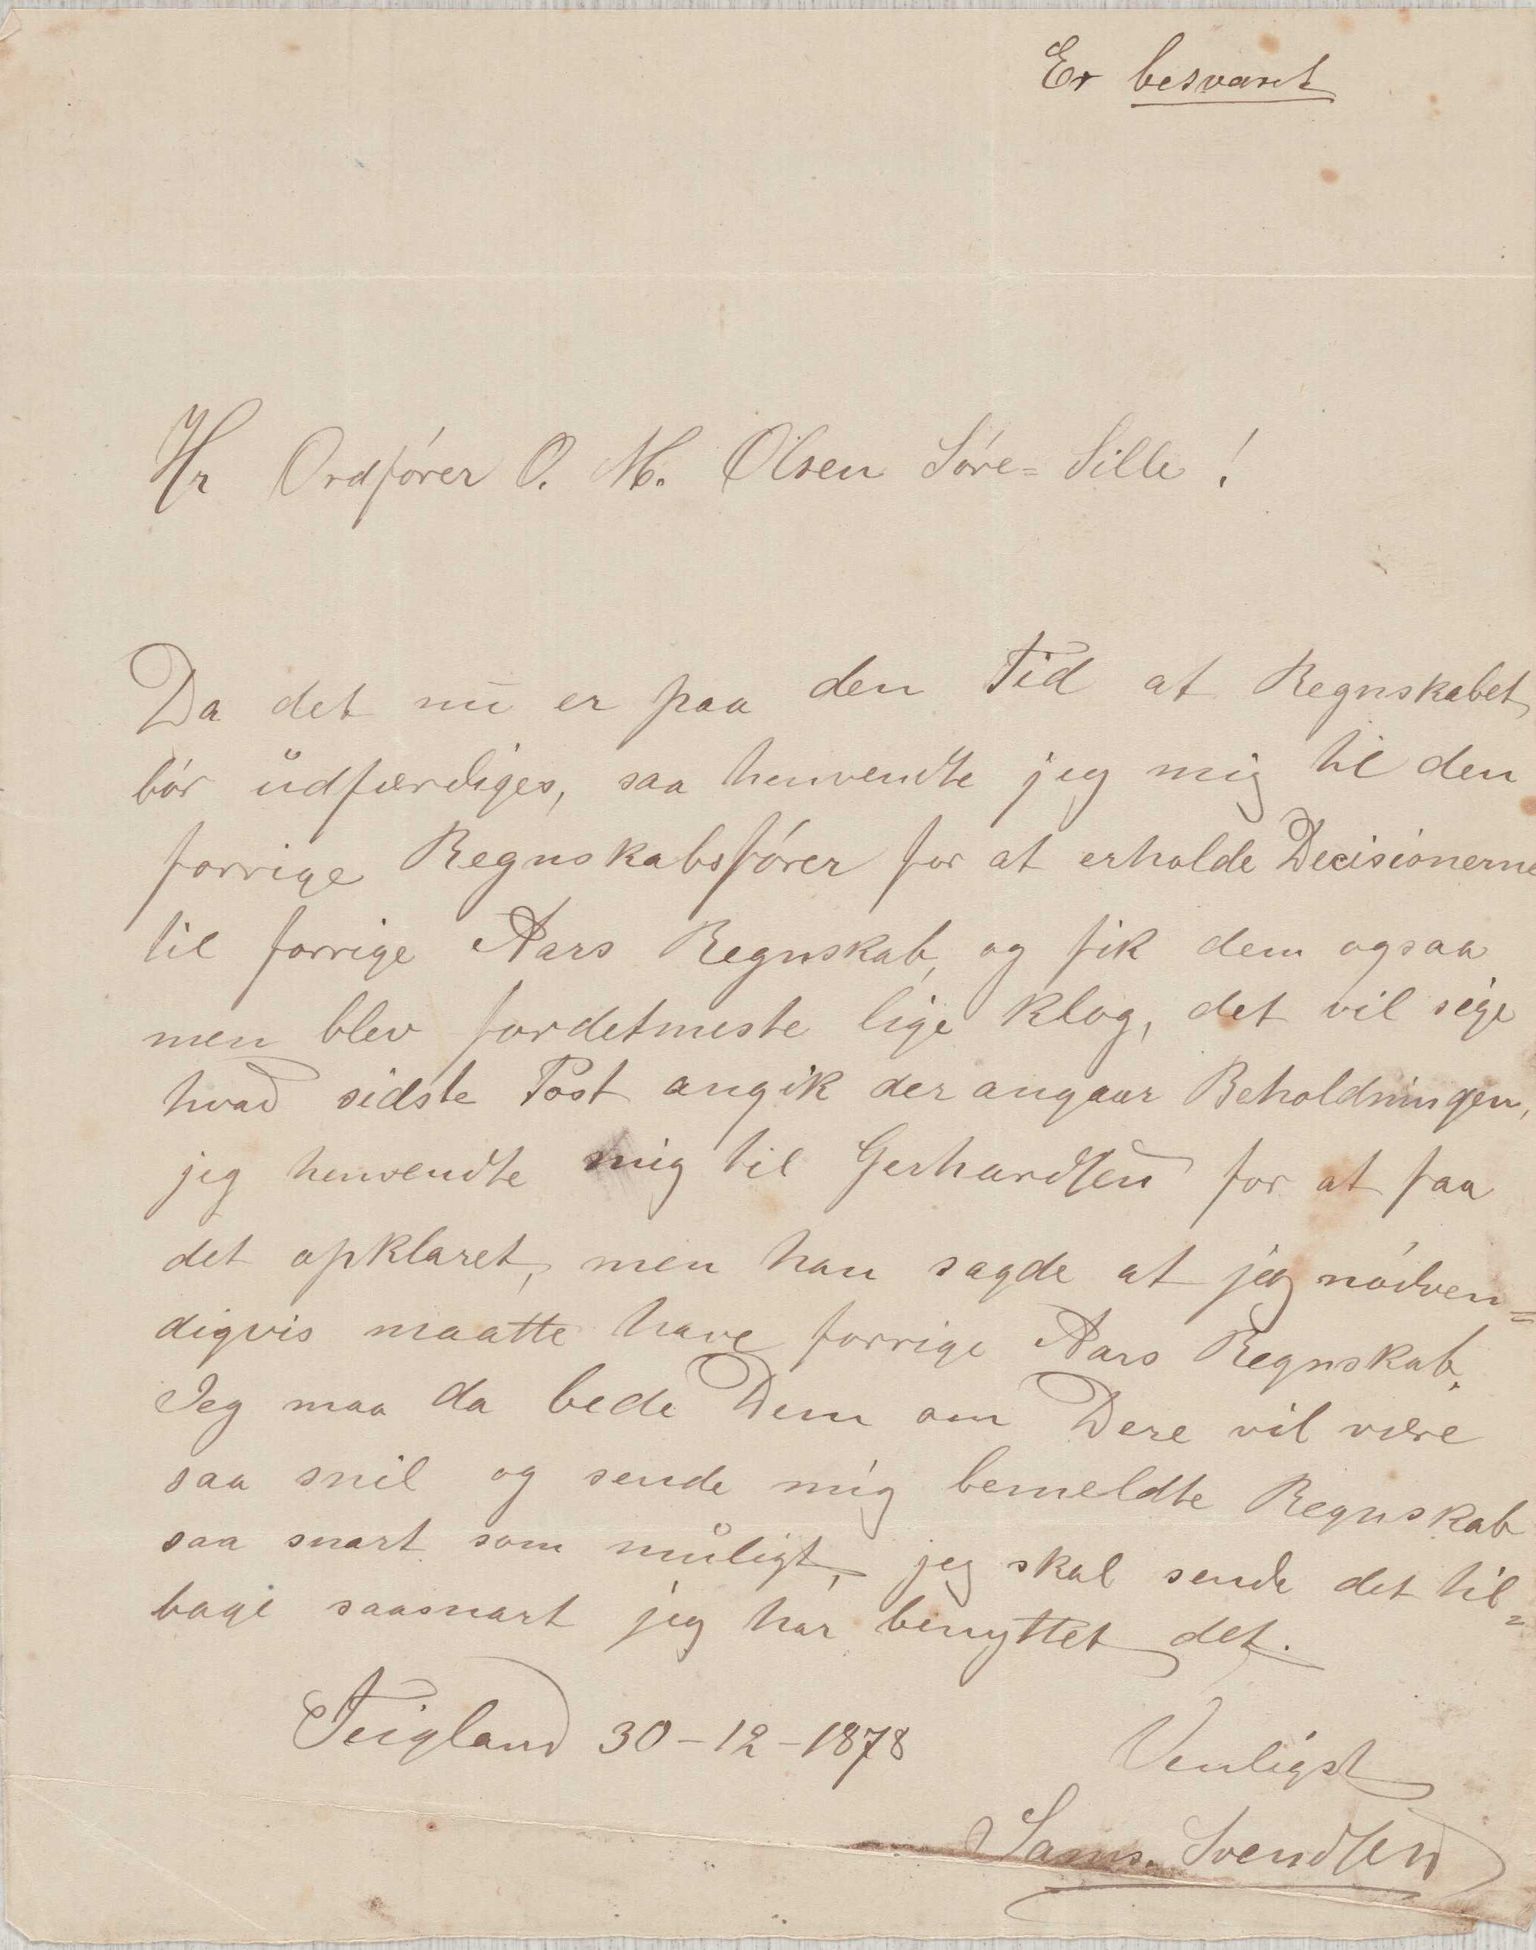 Er besvaret
Hr Ordfører O. M. Olsen Søre= Sille!
Da det nu er paa den Tid at Regnskabet
bør udfærdiges, saa henvendte jeg mig til den
forrige Regnskabsfører for at erholde Decisionerne
til forrige Aars Regnskab, og fik dem ogsaa
men blev fordetmeste lige klog, det vil sige
hvad sidste Post angik der angaar Beholdningen,
jeg henvendte mig til Gerhardsen for at faa
det opklaret, men han sagde at jeg nødven=
digvis maatte have forrige Aars Regnskab.
Jeg maa da bede Dem om Dere vil være
saa snil og sende mig bemeldte Regnskab
saa snart som muligt, jeg skal sende det til=
bage saasnart jeg har benyttet det.
Teigland 30-12-1878
Venligst
Sams. Svendsen